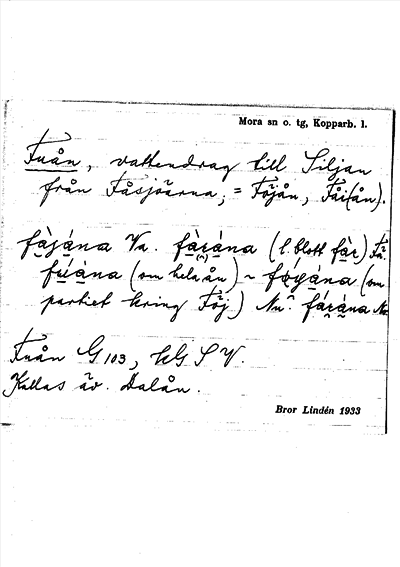 Mora sn o. tg, Kopparb. l.
Fuån, vattendrag till Siljan
från Fåsjöarna, = Föjån, Fåi(ån).
fàjána Va. fàrána (l. blott fàr) Få.
fúána (om hela ån) ~ (om
partiet kring Föj.) Nu. fárána
Fuån G 103, kG S V.
Kallas äv. Dalån.
Bror Lindén 1933